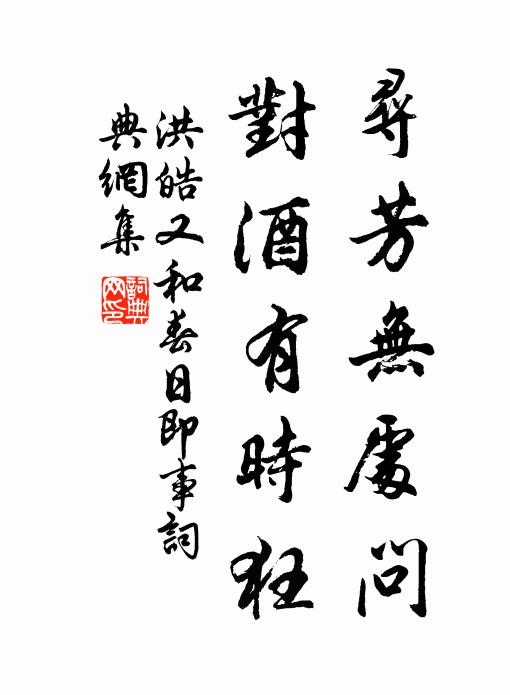 尋芳無處問
對酒有時狂
洪皓又和春日即事詞
典網集
詞典
网印